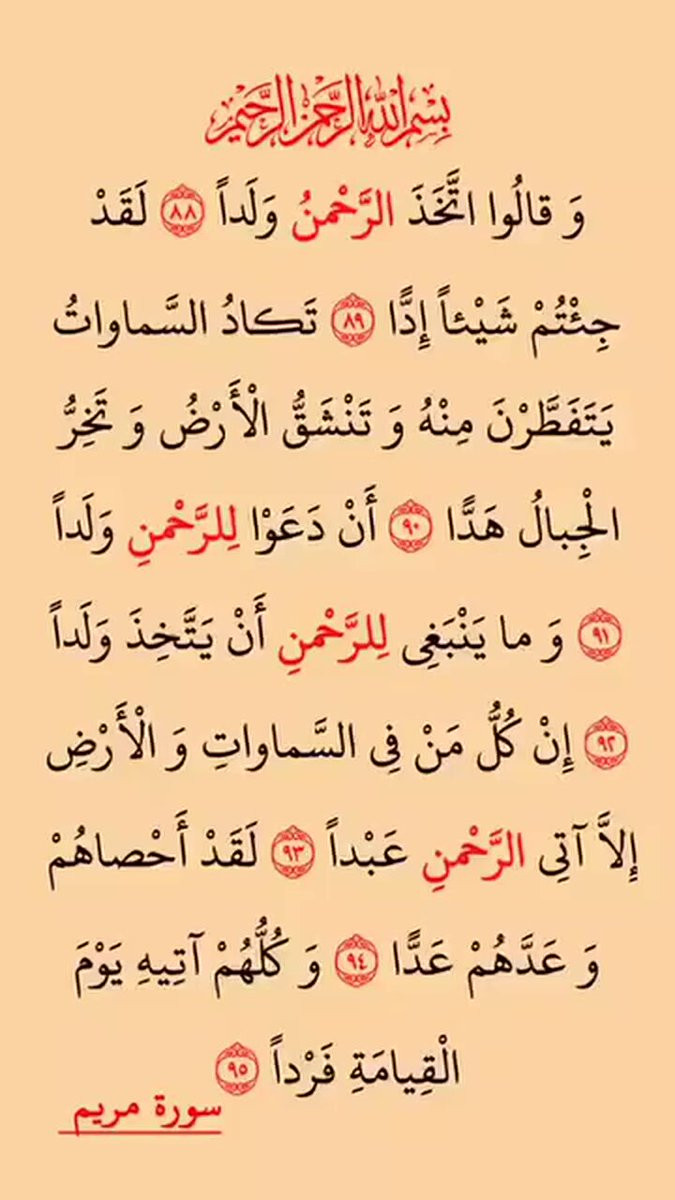 بِسْمِ اللهِ الرَّحْمنِ الرَّحِيمِ
وَ قالُوا اتَّخَذَ الرَّحْمنُ وَلَداً ٨٨ لَقَدْ
جِئْتُمْ شَيْئاً إِدًّا ٨٩ تَكادُ السَّماواتُ
يَتَفَطَّرْنَ مِنْهُ وَ تَنْشَقُّ الْأَرْضُ وَ تَخِرُّ
الْجِبالُ هَدًّا ٩٠ أَنْ دَعَوْا لِلرَّحْمنِ وَلَداً
٩١ وَ ما يَنْبَغِی لِلرَّحْمنِ أَنْ يَتَّخِذَ وَلَداً
٩٢ إِنْ كُلُّ مَنْ فِی السَّماواتِ وَ الْأَرْضِ
إِلاَّ آتِی الرَّحْمنِ عَبْداً ٩٣ لَقَدْ أَحْصاهُمْ
وَ عَدَّهُمْ عَدًّا ٩٤ وَ كُلُّهُمْ آتِيهِ يَوْمَ
الْقِيامَةِ فَرْداً ٩٥
سورة مريم